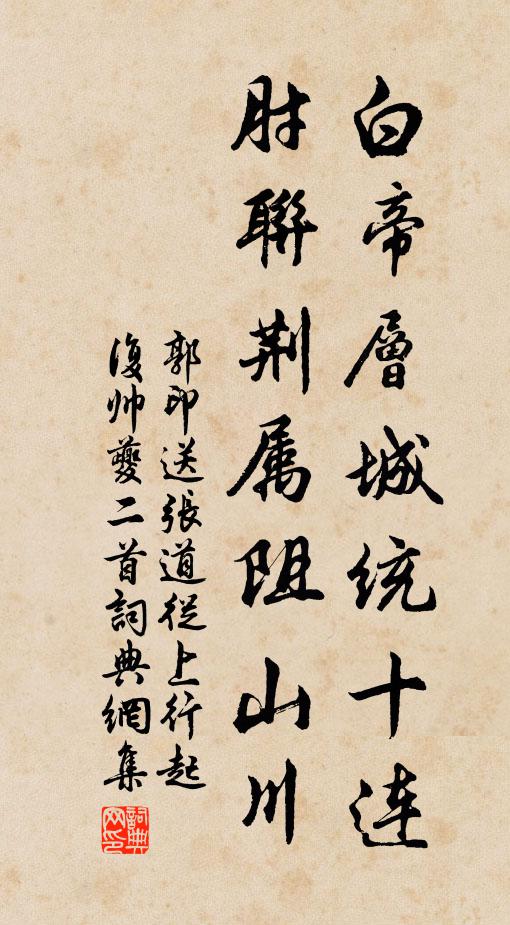 白帝層城統十連
肘聯荆属阻山川
郭印送張道從上行起
復帅夔二首詞典網集
詞典网印